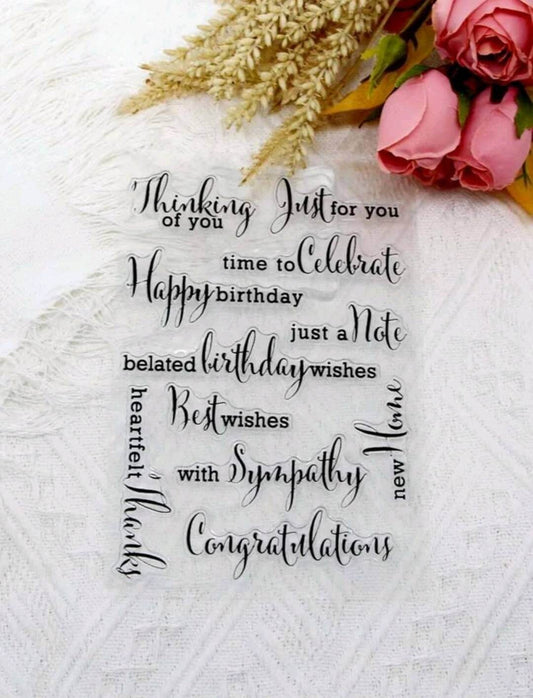 Thinking of you
Just for you
time to Celebrate
Happy birthday
just a Note
belated birthday wishes
Best wishes
heartfelt Thanks
new Home
with Sympathy
Congratulations